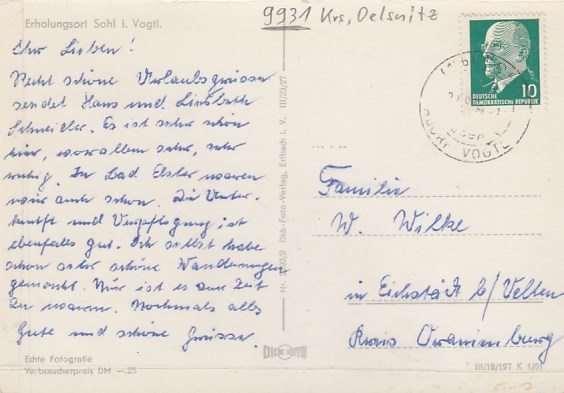 Erholungsort Sohl i. Vogtl.
9931 Krs. Oelsnitz
Ihr Lieben!
Recht schöne Urlaubsgrüsse
sendet Hans und Liesbeth
Schneider. Es ist sehr schön
hier, vor allem sehr, sehr
ruhig. In Bad Elster waren
wir auch schon. Die Unter-
kunft und Verpflegung ist
ebenfalls gut. Ich selbst habe
schon sehr schöne Wanderungen
gemacht. Nur ist es zur Zeit
zu warm. Nochmals alles
Gute und schöne Grüsse.
Echte Fotografie
Verbraucherpreis DM —.25
Dick-Foto-Verlag, Erlbach i. V. III/23/27
DICK FOTO
10
DEUTSCHE
DEMOKRATISCHE REPUBLIK
VOGTL
Familie
W. Wilke
in Eichstädt b/Velten
Kreis Oranienburg
III/18/197 K 1/61